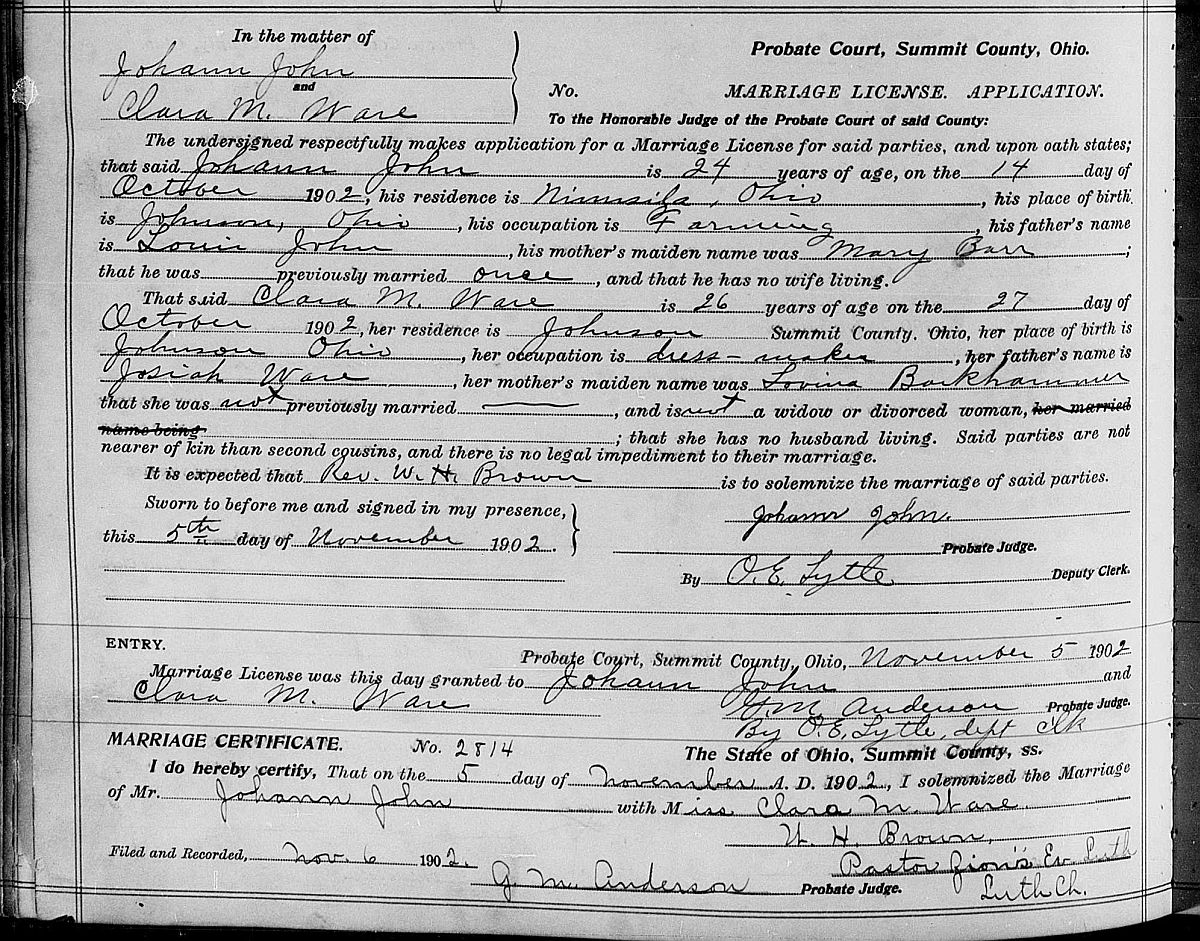 In the matter of
Johann John
and
Clara M. Ware
Probate Court, Summit County, Ohio.
No. MARRIAGE LICENSE. APPLICATION.
To the Honorable Judge of the Probate Court of said County:
The undersigned respectfully makes application for a Marriage License for said parties, and upon oath states;
that said Johann John is 24 years of age, on the 14 day of
October 1902, his residence is Nimisila, Ohio, his place of birth
is Johnson, Ohio, his occupation is Farming, his father's name
is Louis John, his mother's maiden name was Mary Barr;
that he was previously married once, and that he has no wife living.
That said Clara M. Ware is 26 years of age on the 27 day of
October 1902, her residence is Johnson Summit County, Ohio, her place of birth is
Johnson Ohio, her occupation is dress-maker, her father's name is
Josiah Ware, her mother's maiden name was Lovina Barkhammer
that she was not previously married —, and is not a widow or divorced woman, her married
name being ; that she has no husband living. Said parties are not
nearer of kin than second cousins, and there is no legal impediment to their marriage.
It is expected that Rev. W. H. Brown is to solemnize the marriage of said parties.
Sworn to before me and signed in my presence,
this 5th day of November 1902.
Johann John.
Probate Judge.
By O. E. Lytle Deputy Clerk.
ENTRY.
Probate Court, Summit County, Ohio, November 5 1902
Marriage License was this day granted to Johann John and
Clara M. Ware
G. M. Anderson Probate Judge.
By O. E. Lytle, dept clk
MARRIAGE CERTIFICATE. No. 2814 The State of Ohio, Summit County, ss.
I do hereby certify, That on the 5 day of November A. D. 1902, I solemnized the Marriage
of Mr. Johann John with Miss Clara M. Ware.
W. H. Brown,
Pastor Zion's Ev. Luth
Luth Ch.
Filed and Recorded, Nov. 6 1902.
G. M. Anderson Probate Judge.